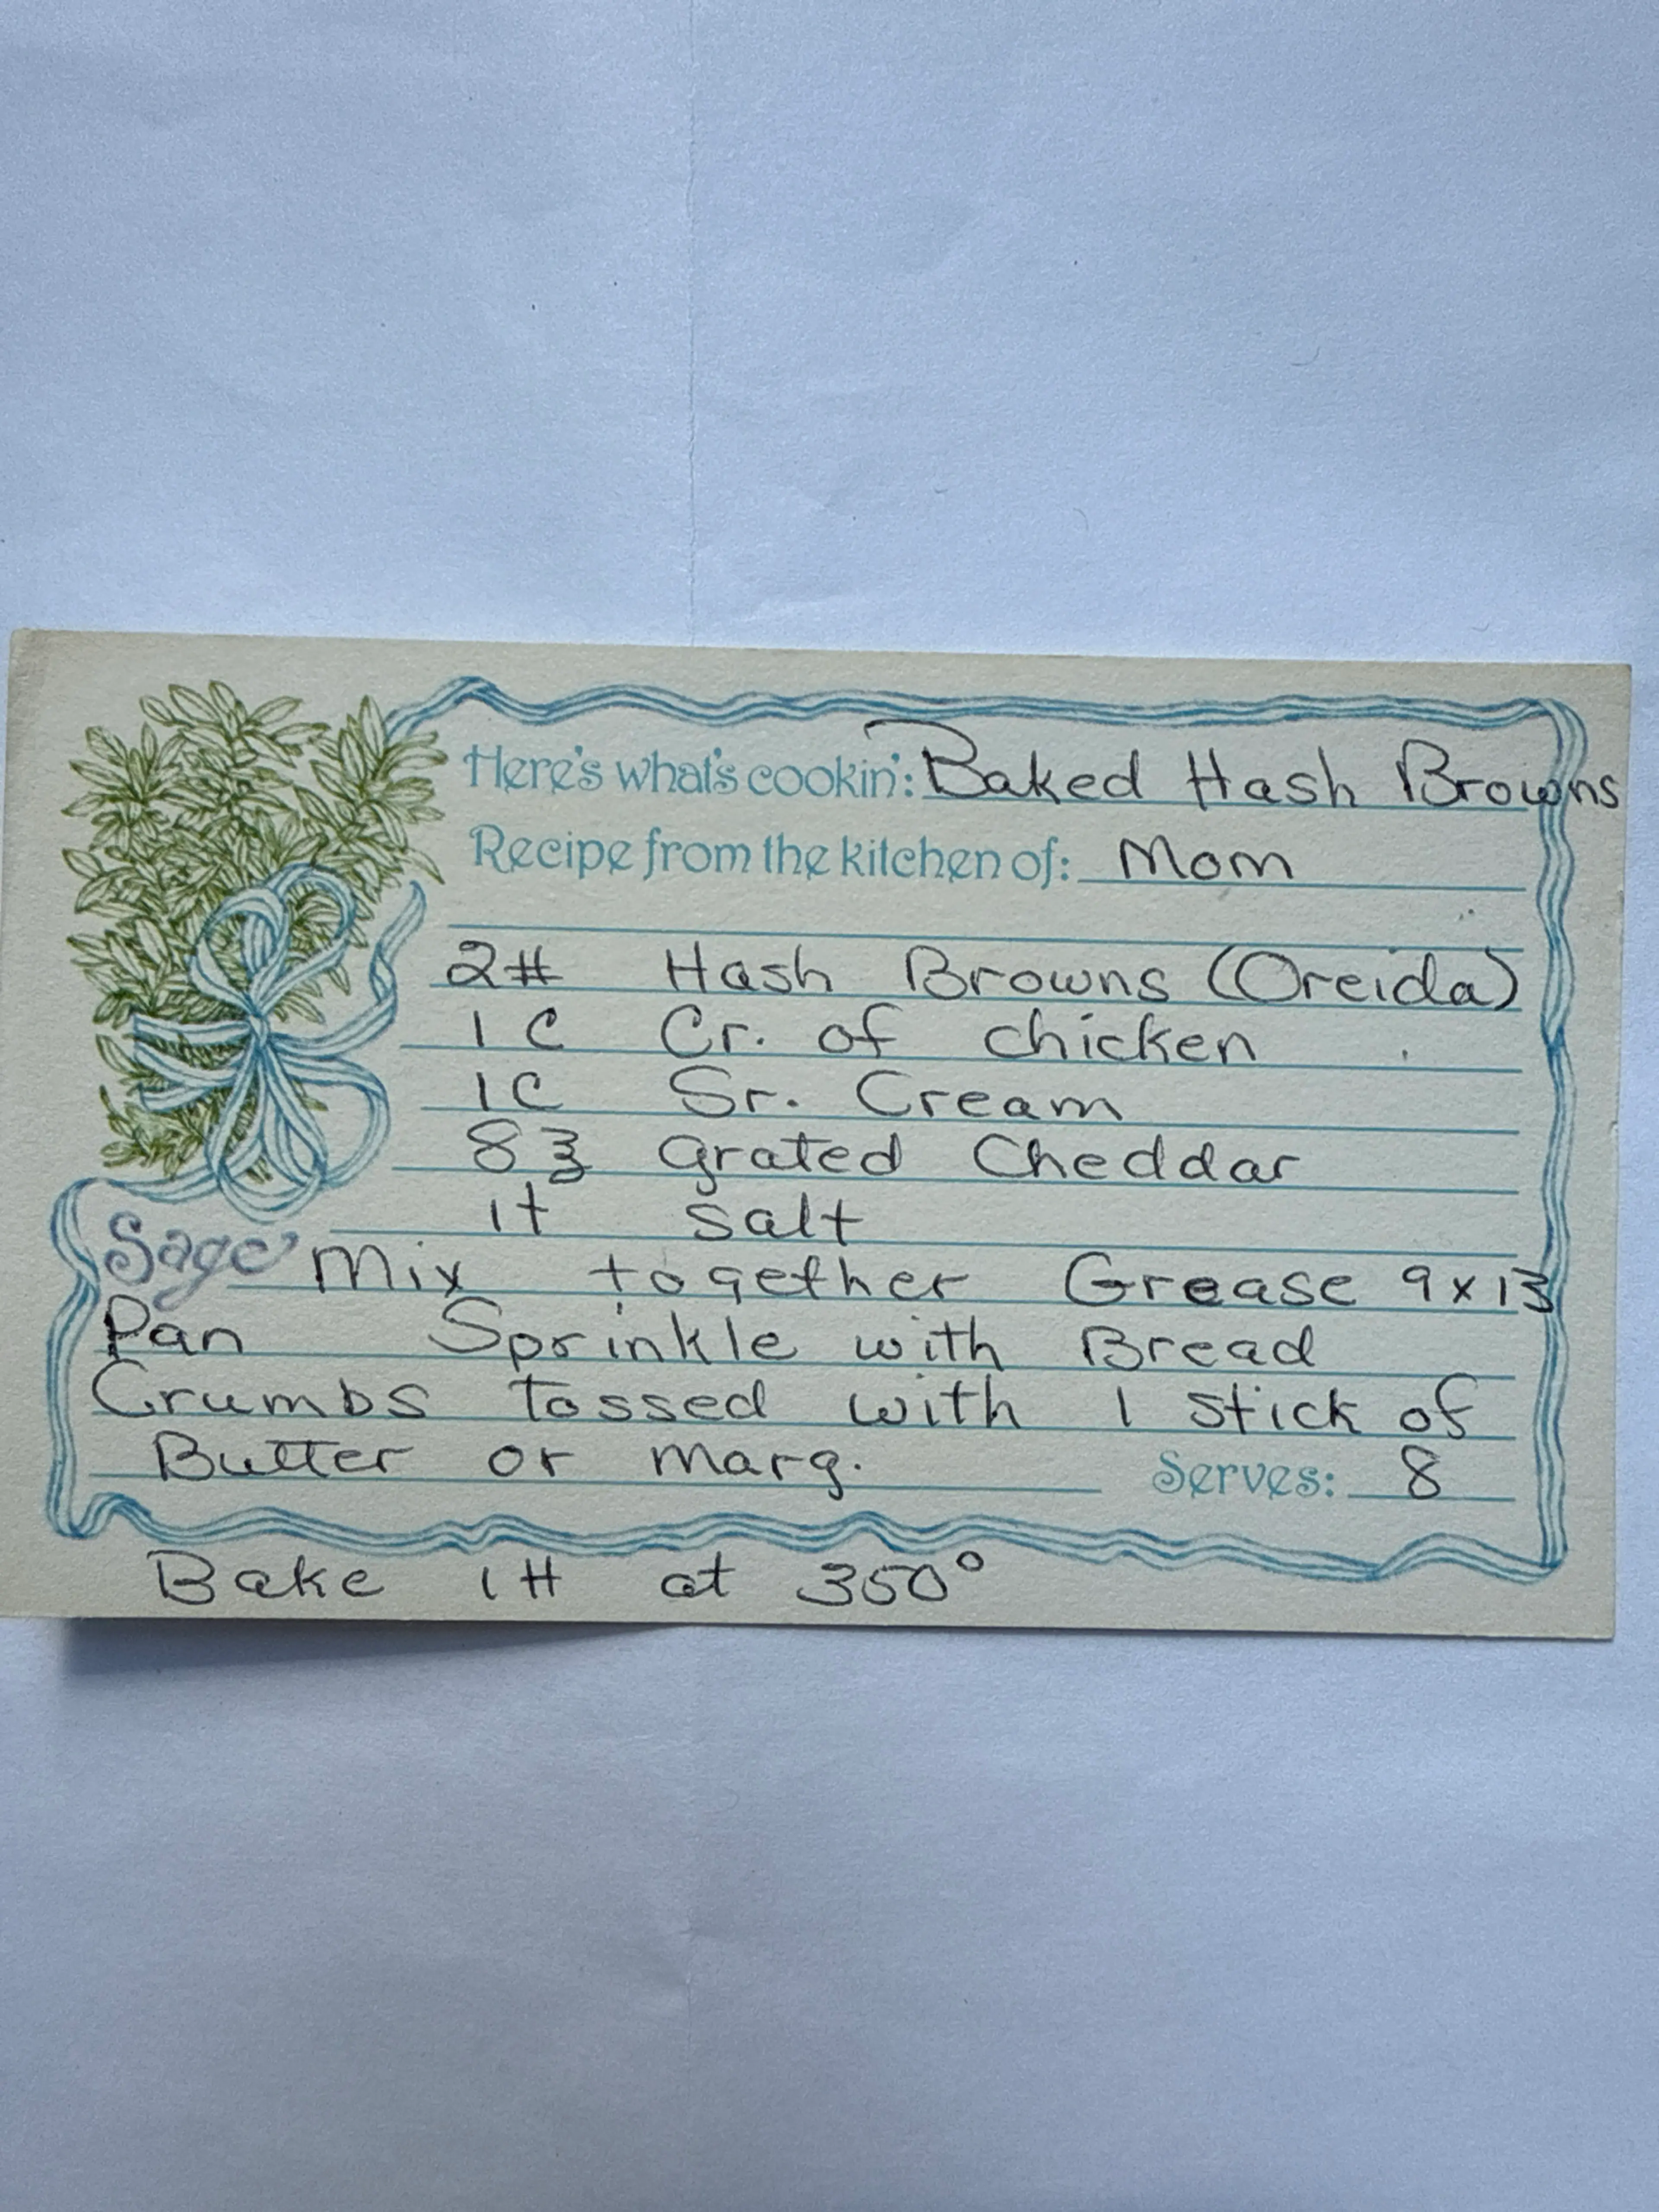 Here's what's cookin': Baked Hash Browns
Recipe from the kitchen of: Mom
2# Hash Browns (Oreida)
1 C Cr. of chicken
1C Sr. Cream
8 ℥ grated Cheddar
1t salt
Sage Mix together Grease 9x13
Pan Sprinkle with Bread
Crumbs tossed with 1 stick of
Butter or marg. Serves: 8
Bake 1H at 350°